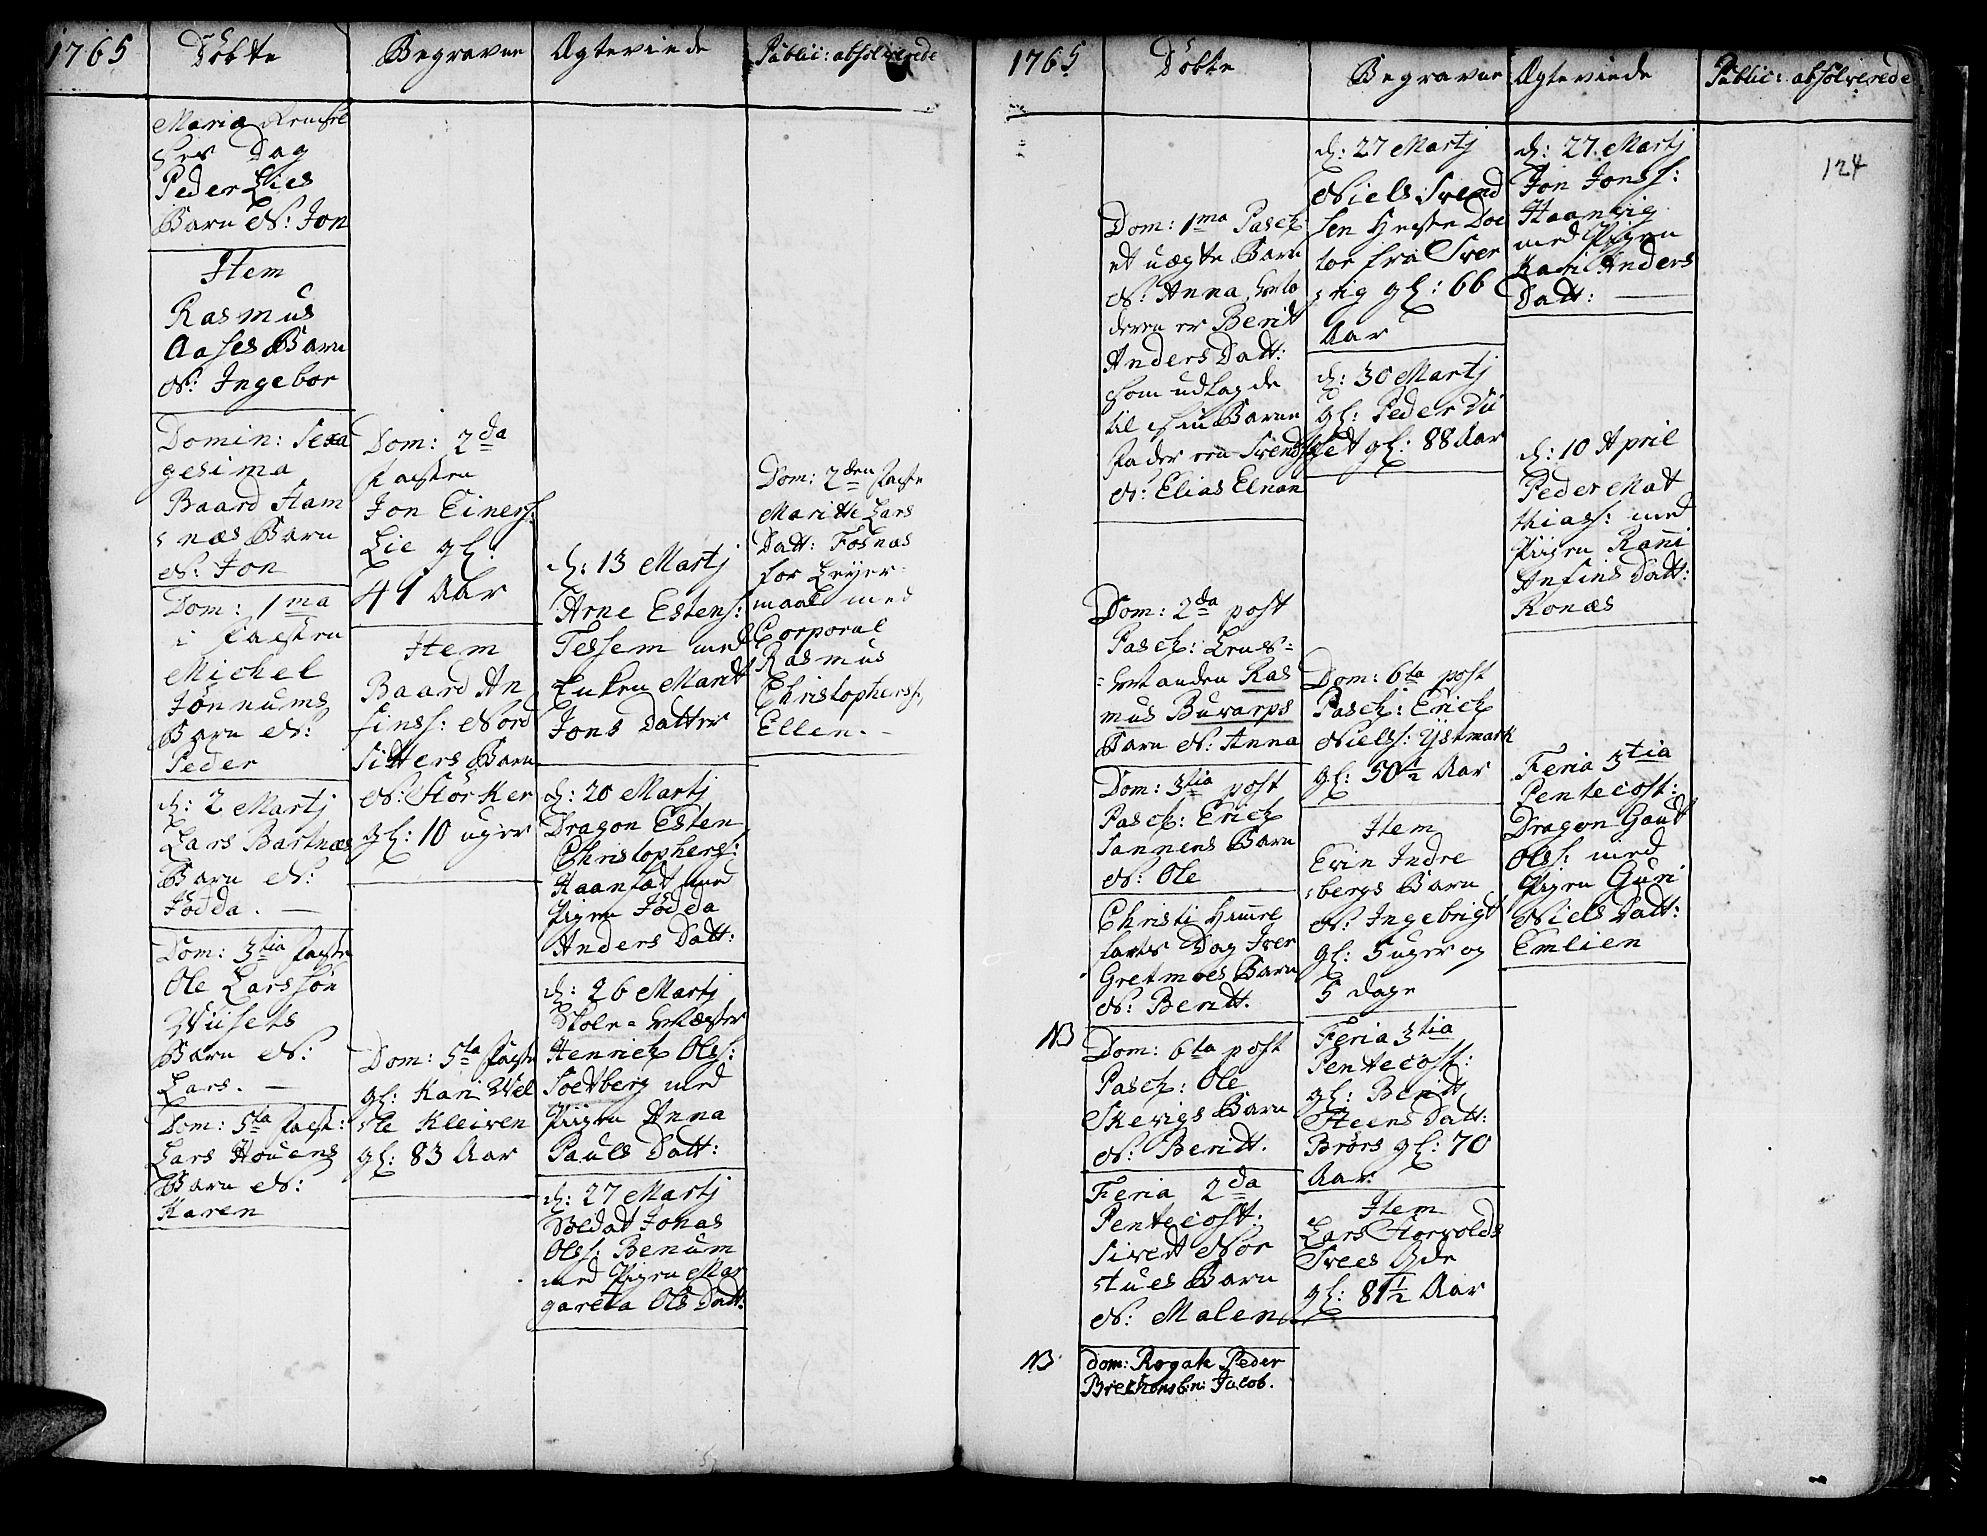 1765
Döbte
Begravne
Ægteviede
Public: absolverede
Maria Renselses Dag
Peder Lies
Barn N: Jon
Item
Rasmus
Aases Barn
N: Ingebor
Domin: Sexa
gesima
Baard Ham
næs Barn
N: Jon
Dom: 1ma
i Fasten
Michel
Jönnums
Barn N:
Peder
d: 2 Martj
Lars Bartnæs
Barn N:
Jödda. —
Dom: 3tia Faste
Ole Larssön
Wiisets
Barn N:
Lars. —
Dom: 5ta Fast:
Lars Houens
Barn N:
Karen
Dom: 2da
Fasten
Jon Einers:
Lie gl:
41 Aar
Item
Baard An
finss: Nord
Sitters Barn
N: Störker
gl: 10 uger
Dom: 5ta Faste
gl: Kari Wel
ste Kleiven
gl: 83 Aar
d: 13 Martj
Arne Estens:
Tessem med
Enken Marit
Jons Datter
d: 20 Martj
Dragon Esten
Christophers:
Haanfat med
Pigen Jödda
Anders Datt:
d: 26 Martj
Skole-Mæster
Henrich Olss:
Soetberg med
Piigen Anna
Pauls Datt:
d: 27 Martj
Soldat Jonas
Olss: Benum
med Pigen Mar
gareta Ols Datt:
Dom: 2den Faste
Maritte Lars
Datt: Fosnæs
for Leyer
maal med
Corporal
Rasmus
Christophers:
Ellen. —
1765
Döbte
Begravne
Ægteviede
Public: absolverede
124
Dom: 1ma Pasch:
et uægte Barn
N: Anna, Mo
deren er Berit
Anders Datt:
som udlagde
til sin Barne
Fader en Svendsk
N: Elias Elnan
Dom: 2da post
Pasch: Lens-
-Manden Ras
mus Buvarps
Barn N: Anna
Dom: 3tia post
Pasch: Erich
Sannens Barn
N: Ole
Christi Himel
farts Dag Iver
Gretmoes Barn
N: Beridt.
NB
Dom: 6ta post
Pasch: Ole
Skevigs Barn
N: Beridt.
Feria 2da
Pentecost:
Sivert Nor
stues Barn
N: Malen
NB
Dom: Rogate Peder
Brechons b: n: Jacob.
d: 27 Martj
Niels Svend
sen Heste Doc
tor fra Sver
rig gl: 66
Aar
d: 30 Martj
gl: Peder Du
fet gl: 88 Aar
Dom: 6ta post
Pasch: Erich
Niels: Ystmark
gl: 50½ Aar
Item
Erin Indre
bergs Barn
N: Ingebrigt
gl: 5 uger og
5 dage
Feria 3tia
Pentecost:
gl: Beridt
Steens Datt:
Brörs gl: 70
Aar.
Item
Lars Horvolds
Svees Öde
gl: 81½ Aar
d: 27 Martj
Jon Jonss:
Haanvig
med Pigen
Kari Anders
Datt: —
d: 10 April
Peder Mat
thiass: med
Piigen Rani
Anfins Datt:
Ronæs
Feria 3tia
Pentecost:
Dragon Gaut
Olss: med
Pigen Guri
Niels Datt:
Emlien